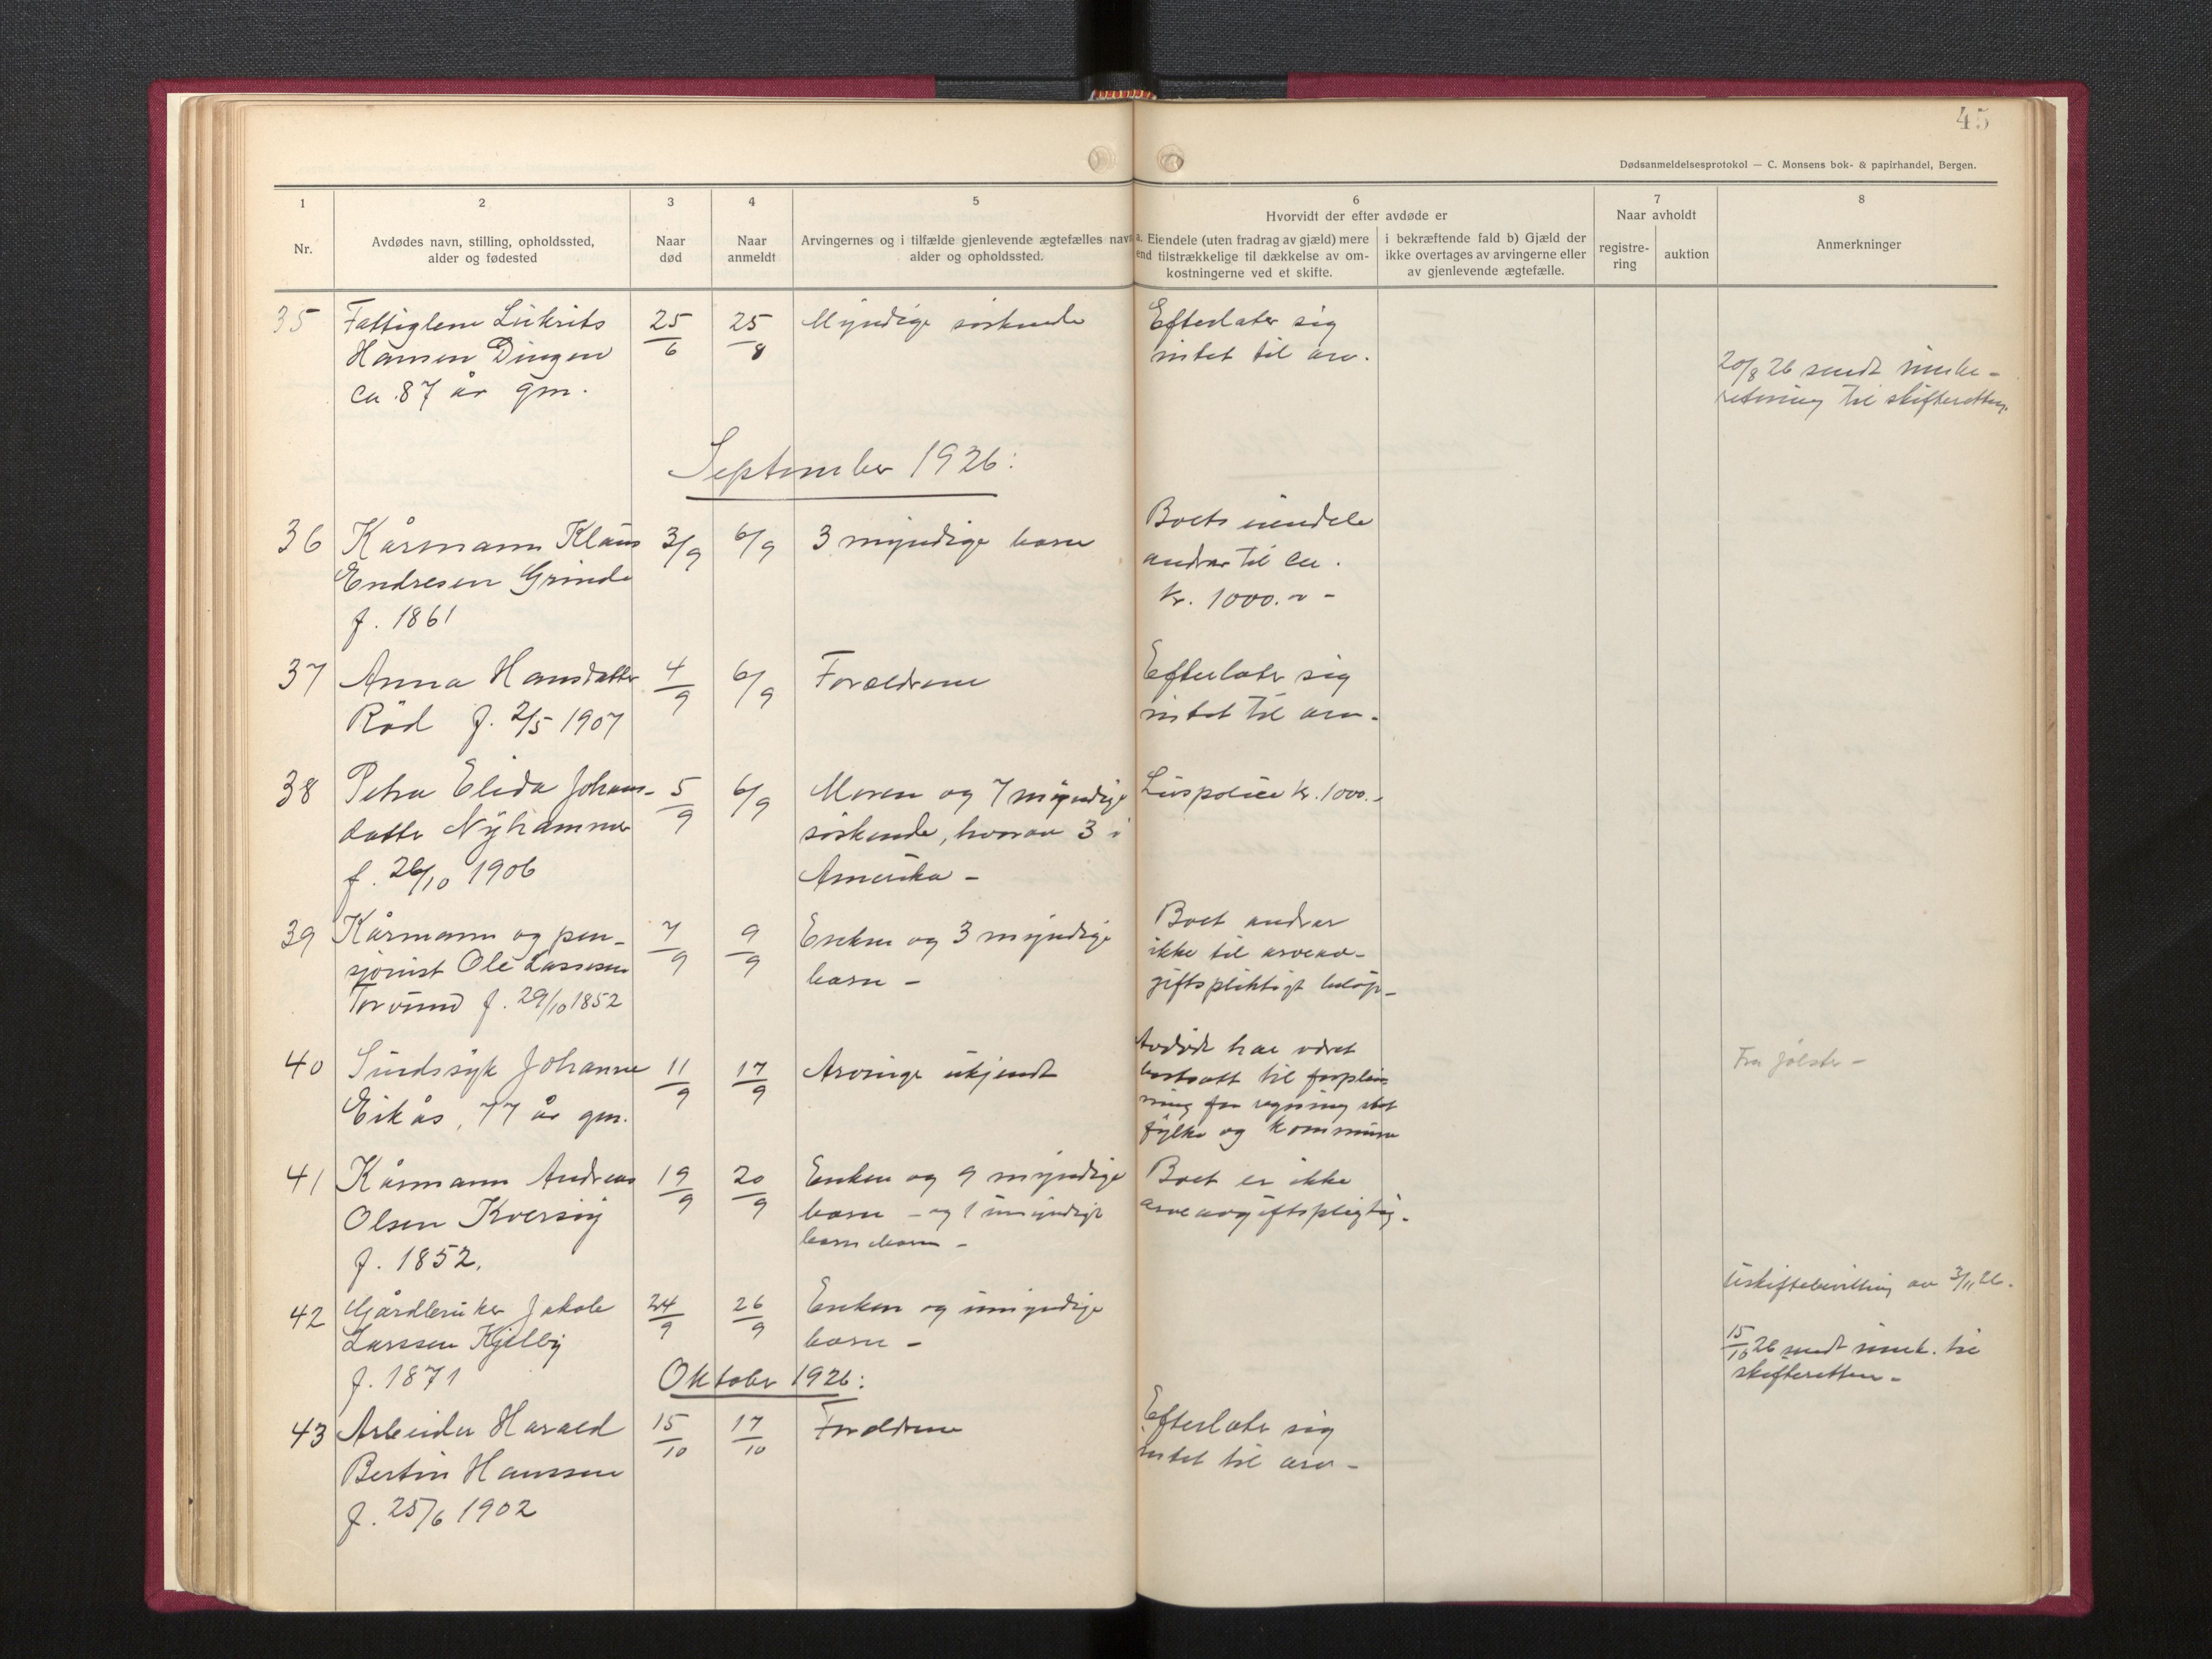 45
Dødsanmeldelsesprotokol — C. Monsens bok- & papirhandel, Bergen.
1
Nr.
2
Avdødes navn, stilling, opholdssted,
alder og fødested
3
Naar
død
4
Naar
anmeldt
5
Arvingernes og i tilfælde gjenlevende ægtefælles navn
alder og opholdssted.
6
Hvorvidt der efter avdøde er
a. Eiendele (uten fradrag av gjæld) mere
end tilstrækkelige til dækkelse av om-
kostningerne ved et skifte.
i bekræftende fald b) Gjæld der
ikke overtages av arvingerne eller
av gjenlevende ægtefælle.
7
Naar avholdt
registre-
ring
auktion
8
Anmerkninger
35
Fattiglem
Hansen Dingen
ca. 87 år gm.
25/6
25/8
Myndige søskende
Efterlater sig
intet til arv.
20/8 26 sendt
til skifteretten.
September 1926:
36
Kårmann Klaus
Endresen Grinde
f. 1861
3/9
6/9
3 myndige barn
Boets eiendele
andrar til ca.
kr. 1000.-
37
Anna Hansdatter
Röd f. 2/5 1907
4/9
6/9
Forældrene
Efterlater sig
intet til arv.
38
Petra Elida Johans-
datter Nyhammer
f. 26/10 1906
5/9
6/9
Moren og 7 myndige
søskende, hvorav 3 i
Amerika -
Livspolice kr. 1000.-
39
Kårmann og pen-
sjonist Ole Lassesen
f. 29/10 1852
7/9
9/9
Enken og 3 myndige
barn -
Boet andrar
ikke til arveav-
giftspliktigt beløp-
40
Sindssyk Johanne
Eikås, 77 år gm.
11/9
17/9
Arvinge ukjendt
Avdøde har været
bortsatt til forplei-
ning for regning
fylke og kommune
Fra Jølster -
41
Kårmann Andreas
Olsen Kversøy
f. 1852.
19/9
20/9
Enken og 9 myndige
barn - og 1 umyndigt
barnebarn -
Boet er ikke
arveavgiftspligtig.
42
Gårdbruker Jakob
Larssen Kjelby
f. 1871
24/9
26/9
Enken og umyndige
barn -
Uskiftebevilling av 3/11 26.
15/10 26 sendt innb. til
skifteretten -
Oktober 1926:
43
Arbeider Harald
Bertin Hanssen
f. 25/6 1902
15/10
17/10
Forældrene
Efterlater sig
intet til arv -